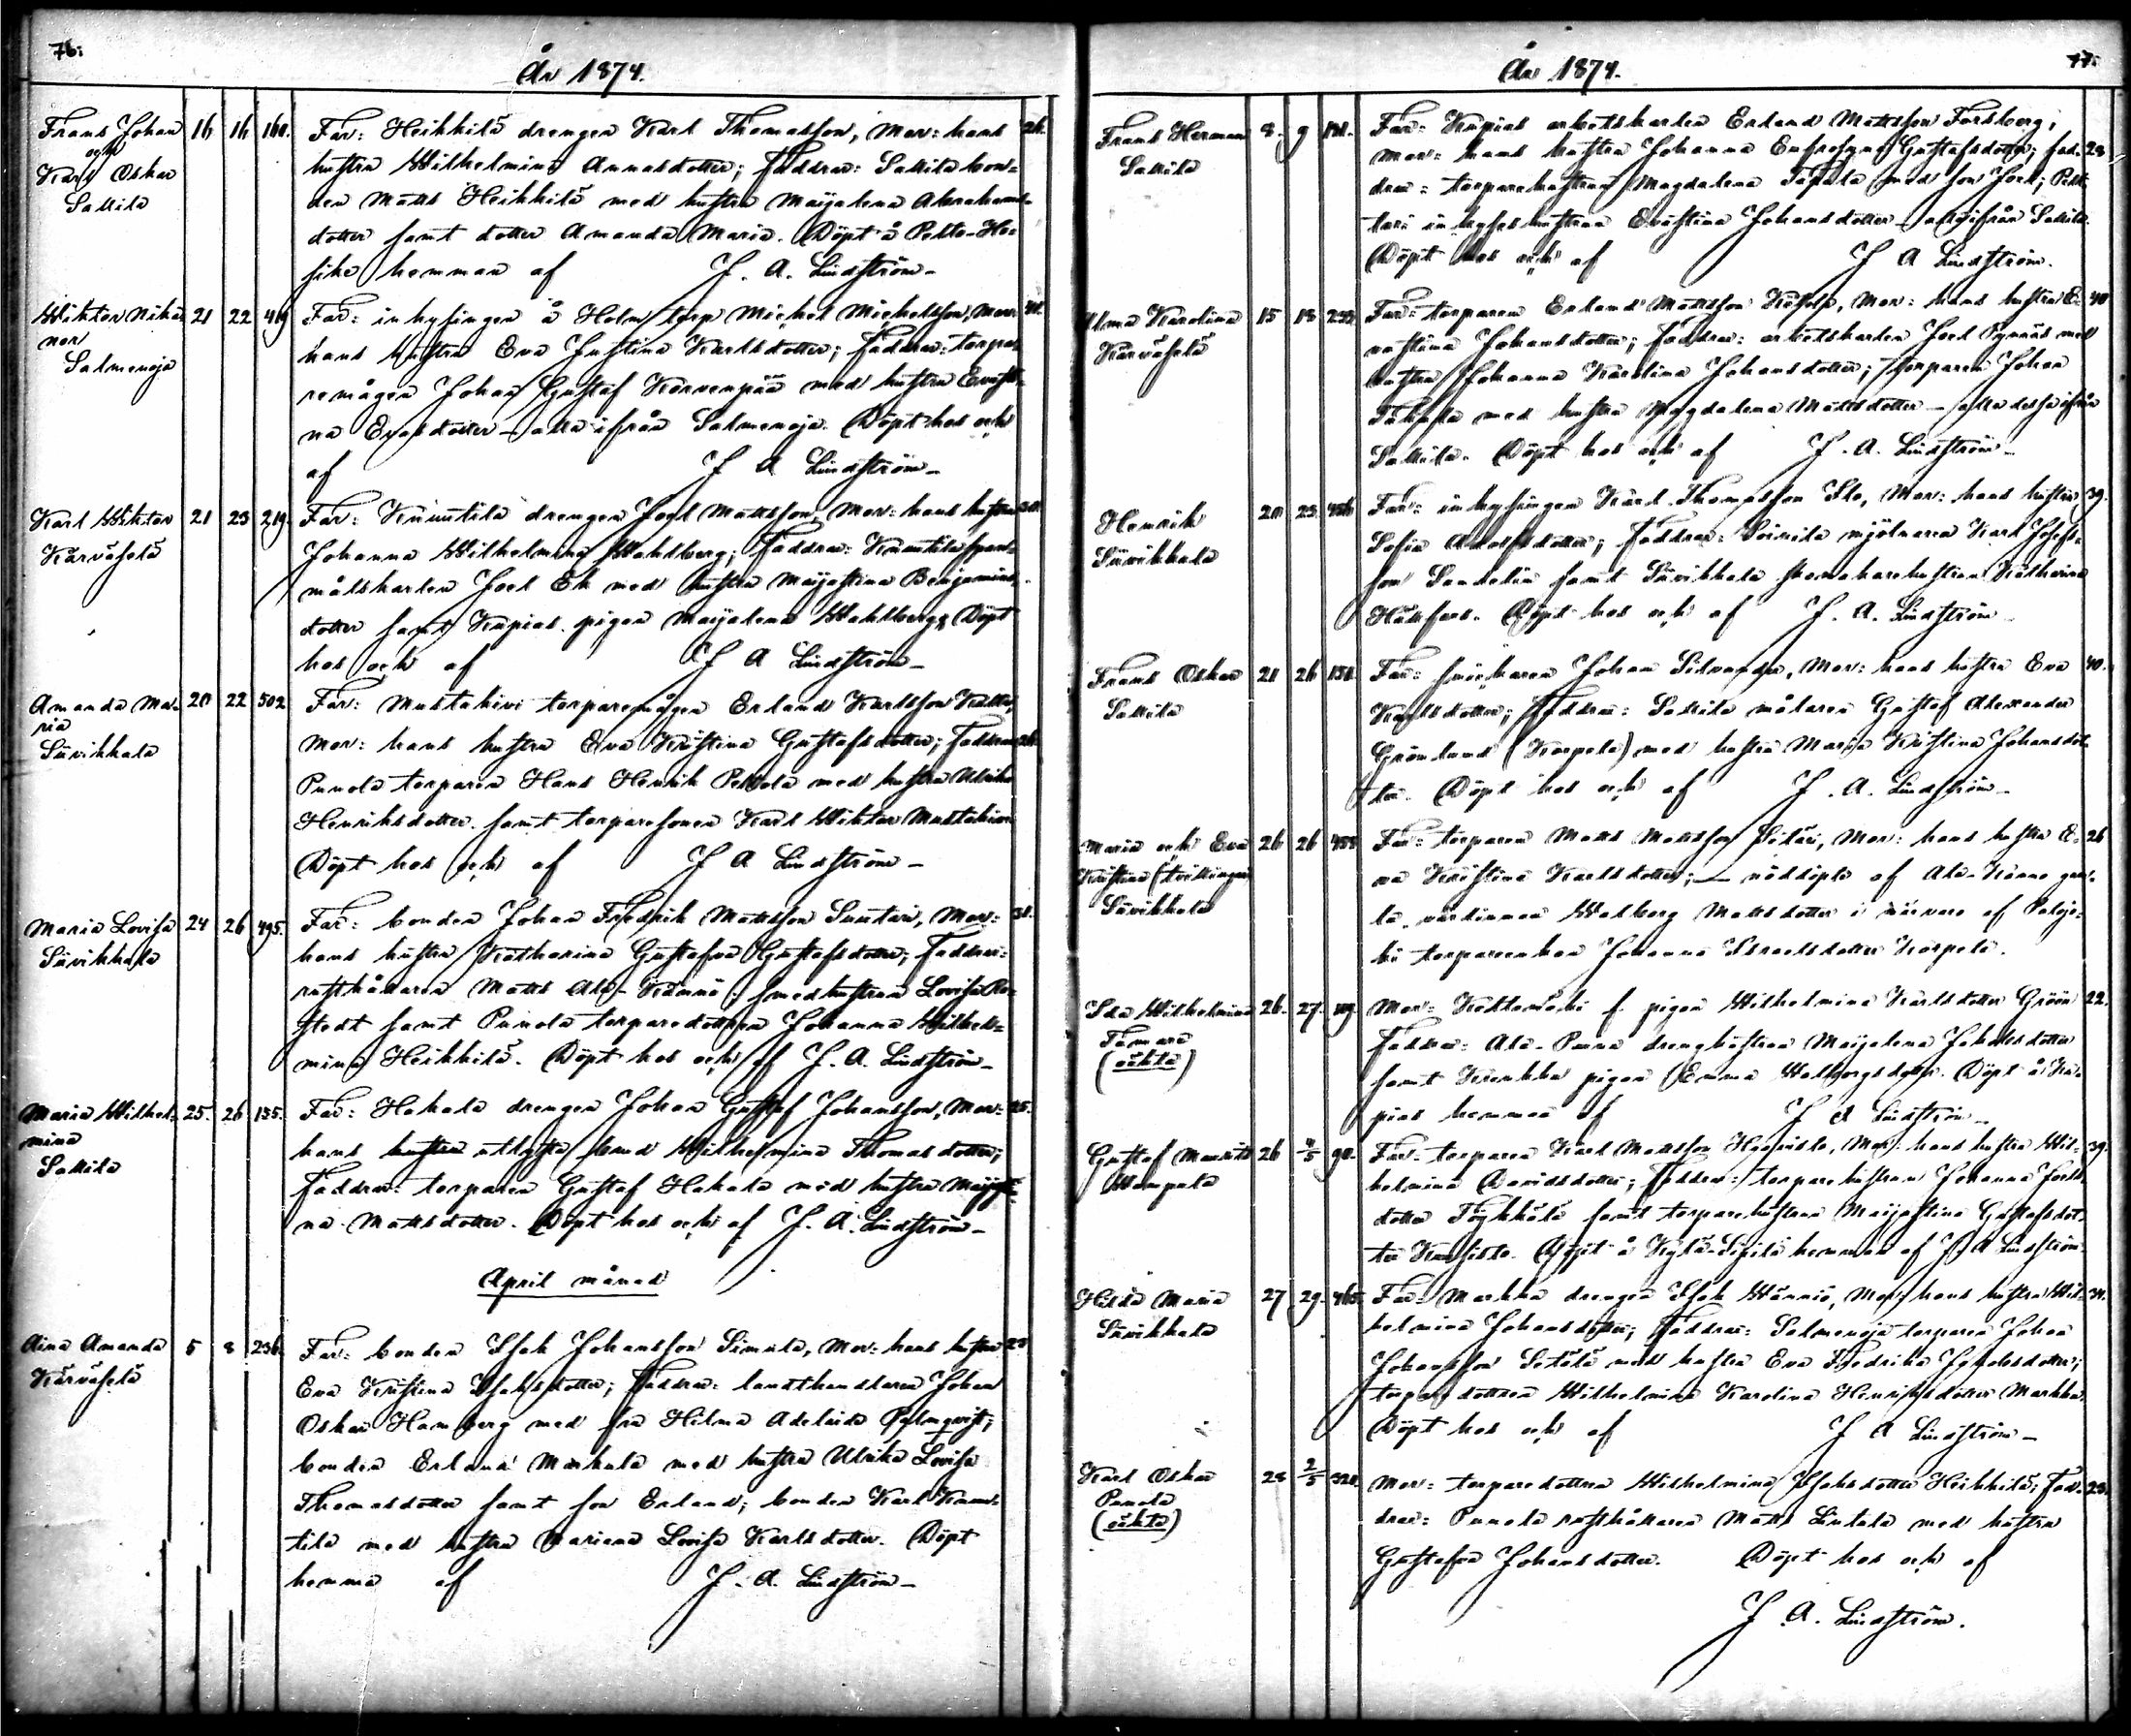 76.
År 1874.
Frans Johan
och
Karl Oskar
Sattila
16 16 160.
Far: Heikkilä drengen Karl Thomasson, Mor: hans 26.
hustru Wilhelmina Annasdotter; Faddrar: Sattila bon-
den Matts Heikkilä med hustru Maijalena Abrahams-
dotter samt dotter Amanda Maria. Döpt å Pelto-
hemman af J. A. Lindström
Wiktor Nika-
nor
Salmenoja
21 22
Far: inhysingen å Holm torp Michel Michelsson, Mor:
hans hustru Eva Justina Karlsdotter; Faddrar: torpa-
remågen Johan Gustaf Karvenpää med hustru Evasti-
na Evasdotter – alla ifrån Salmenoja. Döpt hos och
af J A Lindström
Karl Wiktor
Kärväselä
21 23 219.
Far: Knuutila drengen Joel Mattsson, Mor: hans hustru
Johanna Wilhelmina Wahlberg; Faddrar: Knuutila span-
målskarlen Joel Ek med hustru Maijastina Benjamins-
dotter samt Kupias pigan Maijalena Wahlberg. Döpt
hos och af J A Lindström
Amanda Ma-
ria
Siivikkala
20 22 502
Far: Mustakivi torparemågen Erland Karlsson
Mor: hans hustru Eva Kristina Gustafsdotter; Faddrar
Punola torparen Hans Henrik Peltola med hustru Ulrika
Henriksdotter samt torparesonen Karl Wiktor Mustakivi
Döpt hos och af J A Lindström
Maria Lovisa
Siivikkala
24 26 495.
Far: bonden Johan Fredrik Mattsson Suutari, Mor: 31.
hans hustru Katharina Gustafva Gustafsdotter; Faddrar:
rusthållaren Matts Ala-Kännö; smedhustrun Lovisa Ro-
stedt samt Punola torparedottren Johanna Wilhel-
mina Heikkilä. Döpt hos och af J. A. Lindström
Maria Wilhel-
mina
Sattila
25. 26 135.
Far: Hakala drengen Johan Gustaf Johansson, Mor: 25.
hans hustru utlysta brud Wilhelmina Thomasdotter;
Faddrar: torparen Gustaf Hakala med hustru Maijasti-
na Mattsdotter. Döpt hos och af J. A. Lindström
April månad
Aina Amanda
Kärväselä
5 8 236.
Far: bonden Isak Johansson Simula, Mor: hans hustru 28
Eva Kristina Isaksdotter; Faddrar: landthandlaren Johan
Oskar Hamberg med fru Hilma Adelaida Palmqvist;
bonden Erland Markula med hustru Ulrika Lovisa
Thomasdotter samt son Erland; bonden Karl Knuu-
tila med hustru Mariana Lovisa Karlsdotter. Döpt
hemma af J. A. Lindström
77.
År 1874.
Frans Herman
Sattila
8. 9
Far: Kupias arbetskarlen Erland Mattsson Forsberg;
Mor: hans hustru Johanna Eufrosyna Gustafsdotter; fad- 28
drar: torparehustrun Magdalena Takala med son Joel;
inhyses hustrun Evastina Johansdotter – ifrån Sattila.
Döpt hos och af J A Lindström.
Alma Karolina
Kärväselä
15 18
Far: torparen Erland Mattsson, Mor: hans hustru E- 40
vastina Johansdotter; Faddrar: arbetskarlen Joel Pynnäs med
hustru Johanna Karolina Johansdotter; torparen Johan
Takala med hustru Magdalena Mattsdotter – alla dessa ifrån
Sattila. Döpt hos och af J. A. Lindström
Henrik
Siivikkala
20 23
Far: inhysingen Karl Thomasson Ilo, Mor: hans hustru 39.
Sofia Adolfsdotter; Faddrar: Soinila mjölnaren Karl Josefs-
son Sandelin samt Siivikkala skomakarehustrun Katharina
Hållfast. Döpt hos och af J. A. Lindström
Frans Oskar
Sattila
21 26
Far: snickaren Johan Silvander, Mor: hans hustru Eva 40.
Karlsdotter; Faddrar: Sattila målaren Gustaf Alexander
Grönlund (Korpela) med hustru Maria Kristina Johansdot-
ter. Döpt hos och af J. A. Lindström
Maria och Eva
Kristina (tvillingar)
Siivikkala
26 26
Far: torparen Matts Mattsson, Mor: hans hustru E- 26
va Kristina Karlsdotter; – nöddöpte af Ala-Känno gam-
la värdinnan Walborg Mattsdotter i närvaro af
torpareenkan Johanna Israelsdotter Korpela.
Ida Wilhelmina
(oäkta)
26. 27.
Mor: Kettamäki f. pigan Wilhelmina Karlsdotter Gröön 22.
Faddrar: Ala-Penna drenghustrun Maijalena Jakobsdotter
samt pigan Emma Walborgsdotter. Döpt å Ku-
pias hemman af J A Lindström
Gustaf Mauritz
Wampula
26 4/5
Far: torparen Karl Mattsson, Mor: hans hustru Wil- 39.
helmina Davidsdotter; Faddrar: torparehustrun Johanna Joels-
dotter samt torparehustrun Maijastina Gustafsdot-
ter. Döpt å Kylä-Sipilä hemman af J A Lindström
Hilda Maria
Siivikkala
27 29. 465.
Far: Markka drengen Isak Männiö, Mor: hans hustru Wil-
helmina Johansdotter; Faddrar: Salmenoja torparen Johan
Johansson Setälä med hustru Eva Fredrika Jakobsdotter;
torparedottren Wilhelmina Karolina Henriksdotter Markka.
Döpt hos och af J A Lindström
Karl Oskar
Punola
(oäkta)
28 2/5
Mor: torparedottren Wilhelmina Isaksdotter Heikkilä; Fad-
drar: Punola rusthållaren Matts Lintala med hustru
Gustafva Johansdotter. Döpt hos och af
J A. Lindström.